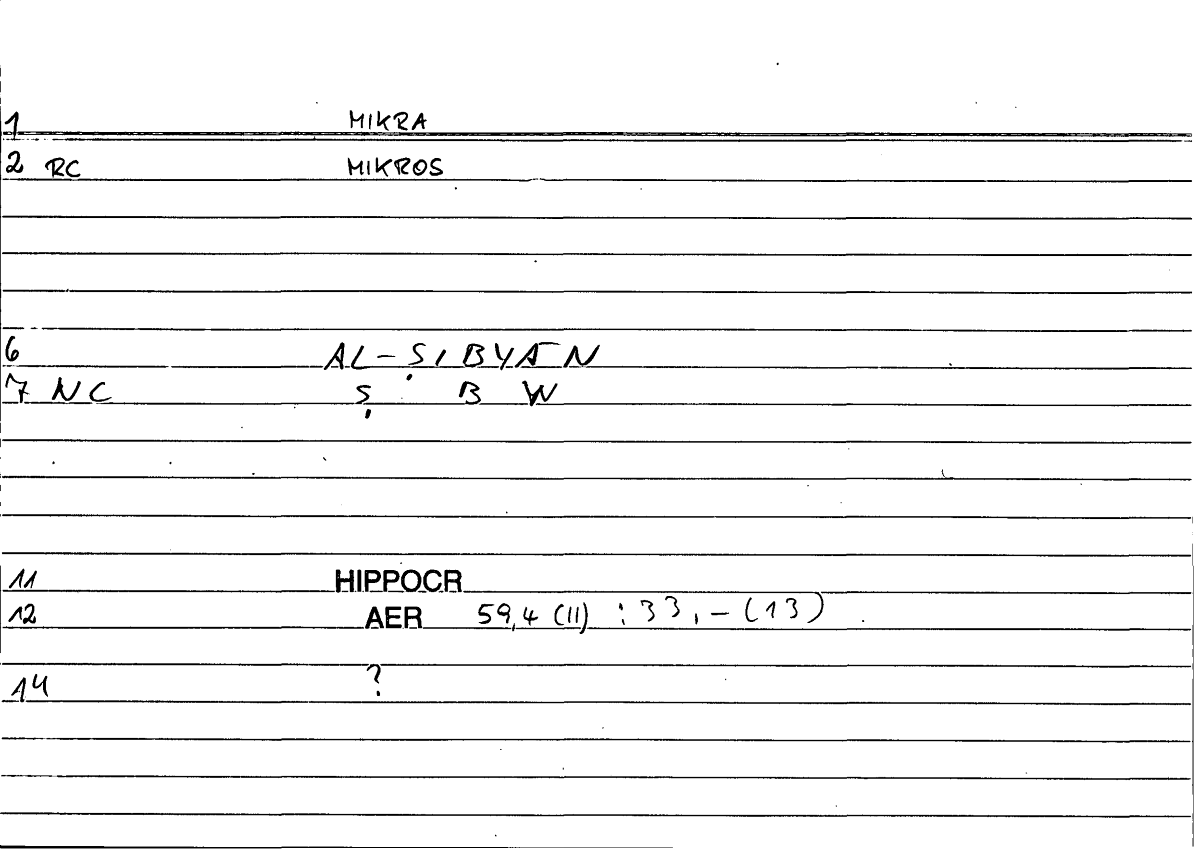 1 MIKRA
2 RC MIKROS
6 AL-ṢIBYĀN
7 NC Ṣ B W
11 HIPPOCR
12 AER 59,4 (11) : 33,-(13)
14 ?